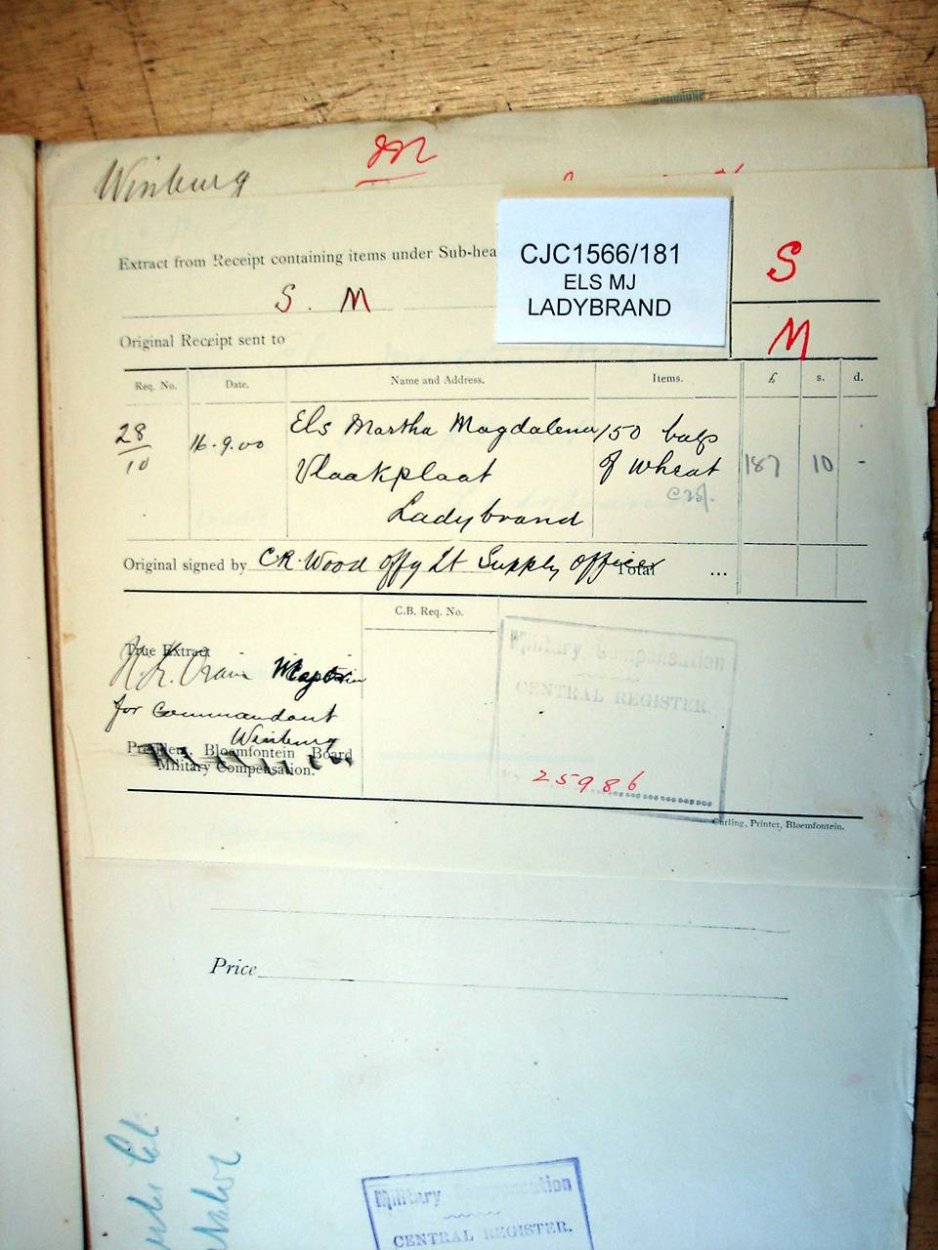 Winburg
M
Extract from Receipt containing items under Sub-hea
CJC1566/181
ELS MJ
LADYBRAND
S
S. M
M
Original Receipt sent to
Req. No. Date. Name and Address. Items. £ s. d.
28/10 16.9.00 Els Martha Magdalena 150 bags
Vlaakplaat of wheat 187 10 -
Ladybrand
Original signed by C.R. Wood Offg Lt Supply officer Total ...
C.B. Req. No.
True Extract
Captain
for Commandant
Winburg
President, Bloemfontein Board
Military Compensation.
Military Compensation
CENTRAL REGISTER.
25986
Curling, Printer, Bloemfontein.
Price
Military Compensation
CENTRAL REGISTER.